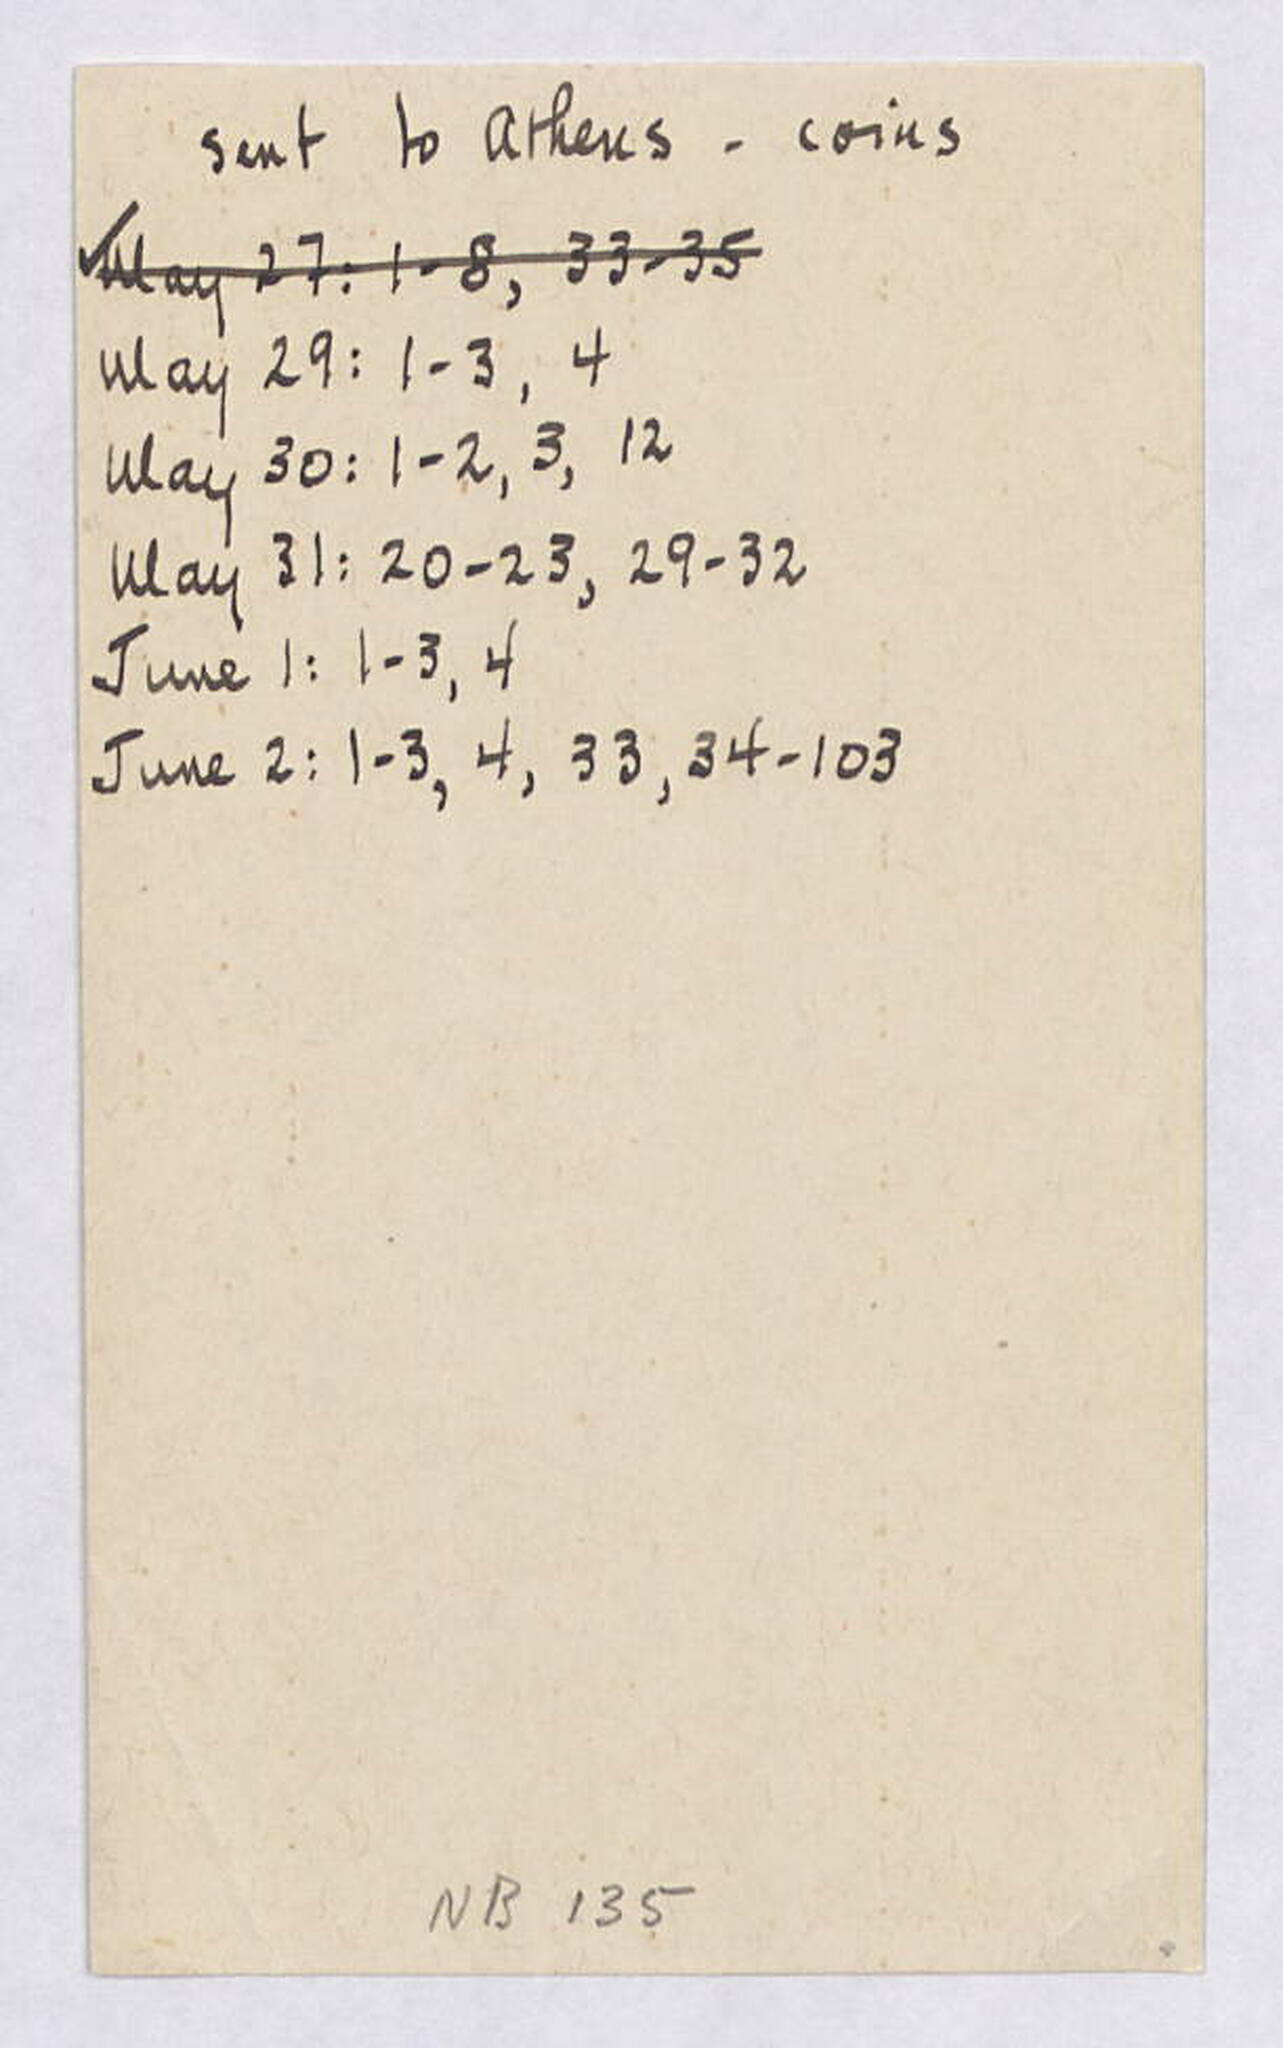 sent to Athens - coins
✓ May 27: 1-8, 33-35
May 29: 1-3, 4
May 30: 1-2, 3, 12
May 31: 20-23, 29-32
June 1: 1-3, 4
June 2: 1-3, 4, 33, 34-103
NB 135